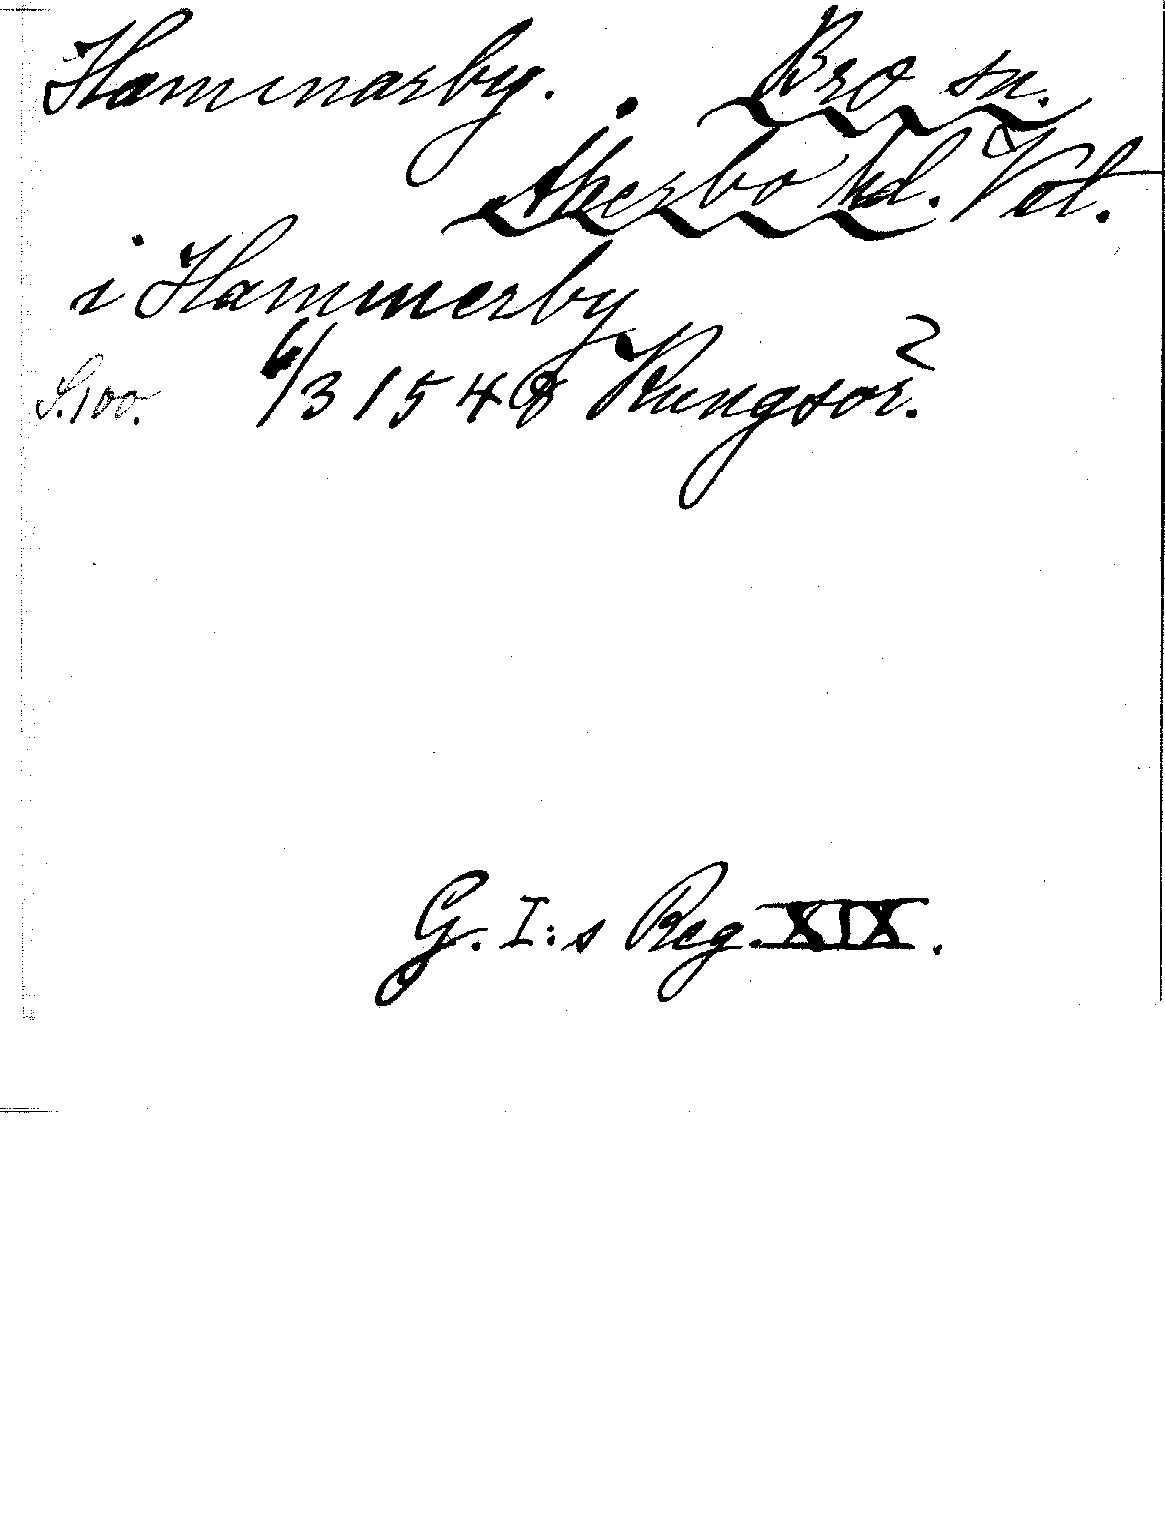 Hammarby. Bro sn.
Åkerbo hd. Vstl.
i Hammerby
S. 100. 6/3 1548 Kungsör.
G. I:s Reg. XIX.